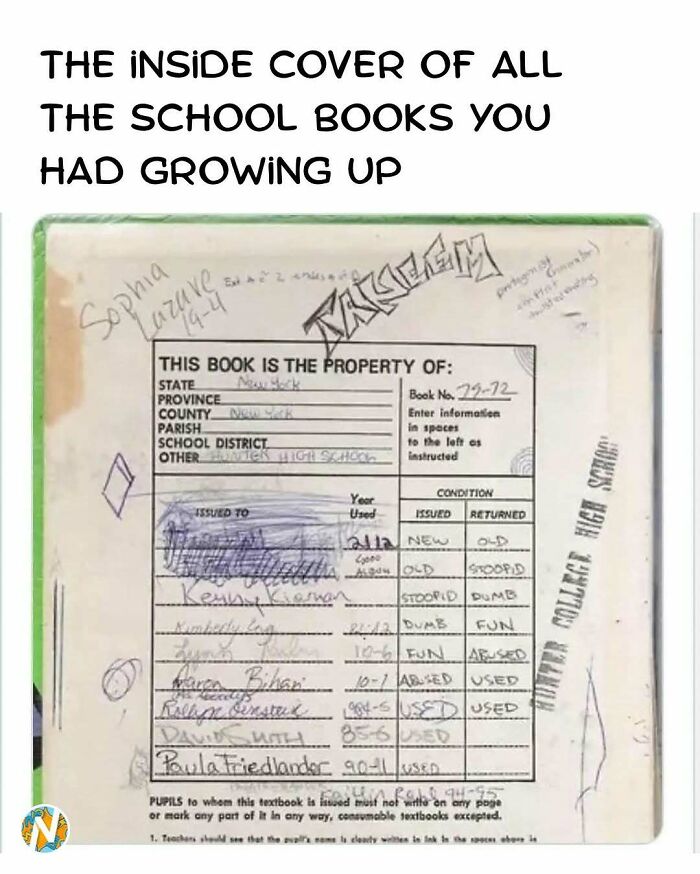 THE INSIDE COVER OF ALL
THE SCHOOL BOOKS YOU
HAD GROWING UP
Sophia
Lazare
19-4
THIS BOOK IS THE PROPERTY OF:
STATE New York
PROVINCE
COUNTY New York
PARISH
SCHOOL DISTRICT
OTHER HUNTER HIGH SCHOOL
Book No. 79-72
Enter information
in spaces
to the left as
instructed
ISSUED TO
Year
Used
CONDITION
ISSUED RETURNED
NEW OLD
OLD STOOPID
Kenny Kiernan STOOPID DUMB
Kimberly DUMB FUN
Lynn 10-6 FUN ABUSED
Aaron Bihari 10-7 ABUSED USED
USED USED
DAVID SMITH 85-6 USED
Paula Friedlander 90-11 USED
94-95
PUPILS to whom this textbook is issued must not write on any page
or mark any part of it in any way, consumable textbooks excepted.
1. Teachers should see that the pupil's name is clearly written in ink in the spaces above in
HUNTER COLLEGE HIGH SCHOOL
N